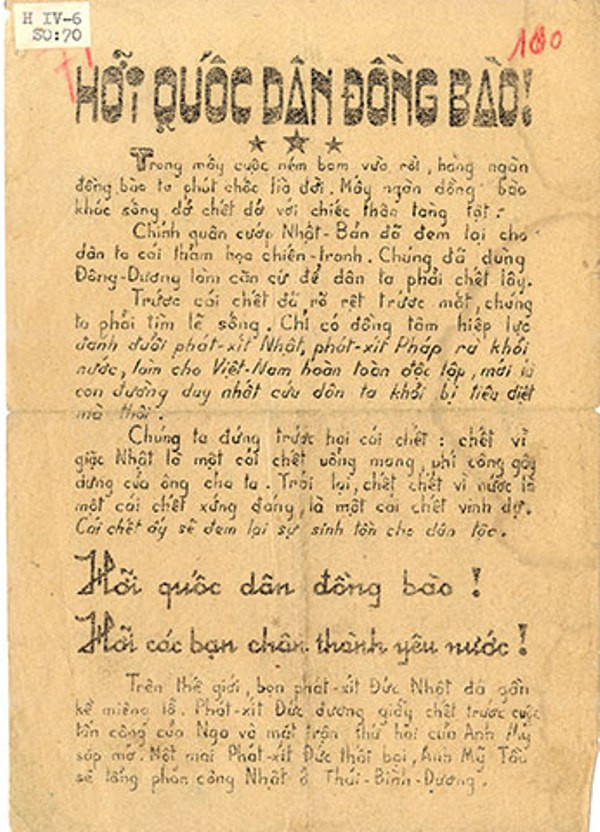 H IV-6
SO:70
100
HỠI QUỐC DÂN ĐỒNG BÀO!
Trong mấy cuộc ném bom vừa rồi, hàng ngàn
đồng bào ta phút chốc lìa đời. Mấy ngàn đồng bào
khác sống dở chết dở với chiếc thân tàng tật.
Chính quân cướp Nhật-Bản đã đem lại cho
dân ta cái thảm họa chiến-tranh. Chúng đã dùng
Đông-Dương làm căn cứ để dân ta phải chết lây.
Trước cái chết đã rõ rệt trước mắt, chúng
ta phải tìm lẽ sống. Chỉ có đồng tâm hiệp lực
đánh đuổi phát-xít Nhật, phát-xít Pháp ra khỏi
nước, làm cho Việt-Nam hoàn toàn độc lập, mới là
con đường duy nhất cứu dân ta khỏi bị tiêu diệt
mà thôi.
Chúng ta đứng trước hai cái chết: chết vì
giặc Nhật là một cái chết uổng mạng, phí công gây
dựng của ông cha ta. Trái lại, chết vì nước là
một cái chết xứng đáng, là một cái chết vinh dự.
Cái chết ấy sẽ đem lại sự sinh tồn cho dân tộc.
Hỡi quốc dân đồng bào!
Hỡi các bạn chân thành yêu nước!
Trên thế giới, bọn phát-xít Đức Nhật đã gần
kề miệng lỗ. Phát-xít Đức đương giẫy chết trước cuộc
tấn công của Nga và mặt trận thứ hai của Anh Mỹ
sắp mở. Một mai Phát-xít Đức thất bại, Anh Mỹ Tầu
sẽ tổng phản công Nhật ở Thái-Bình-Dương.